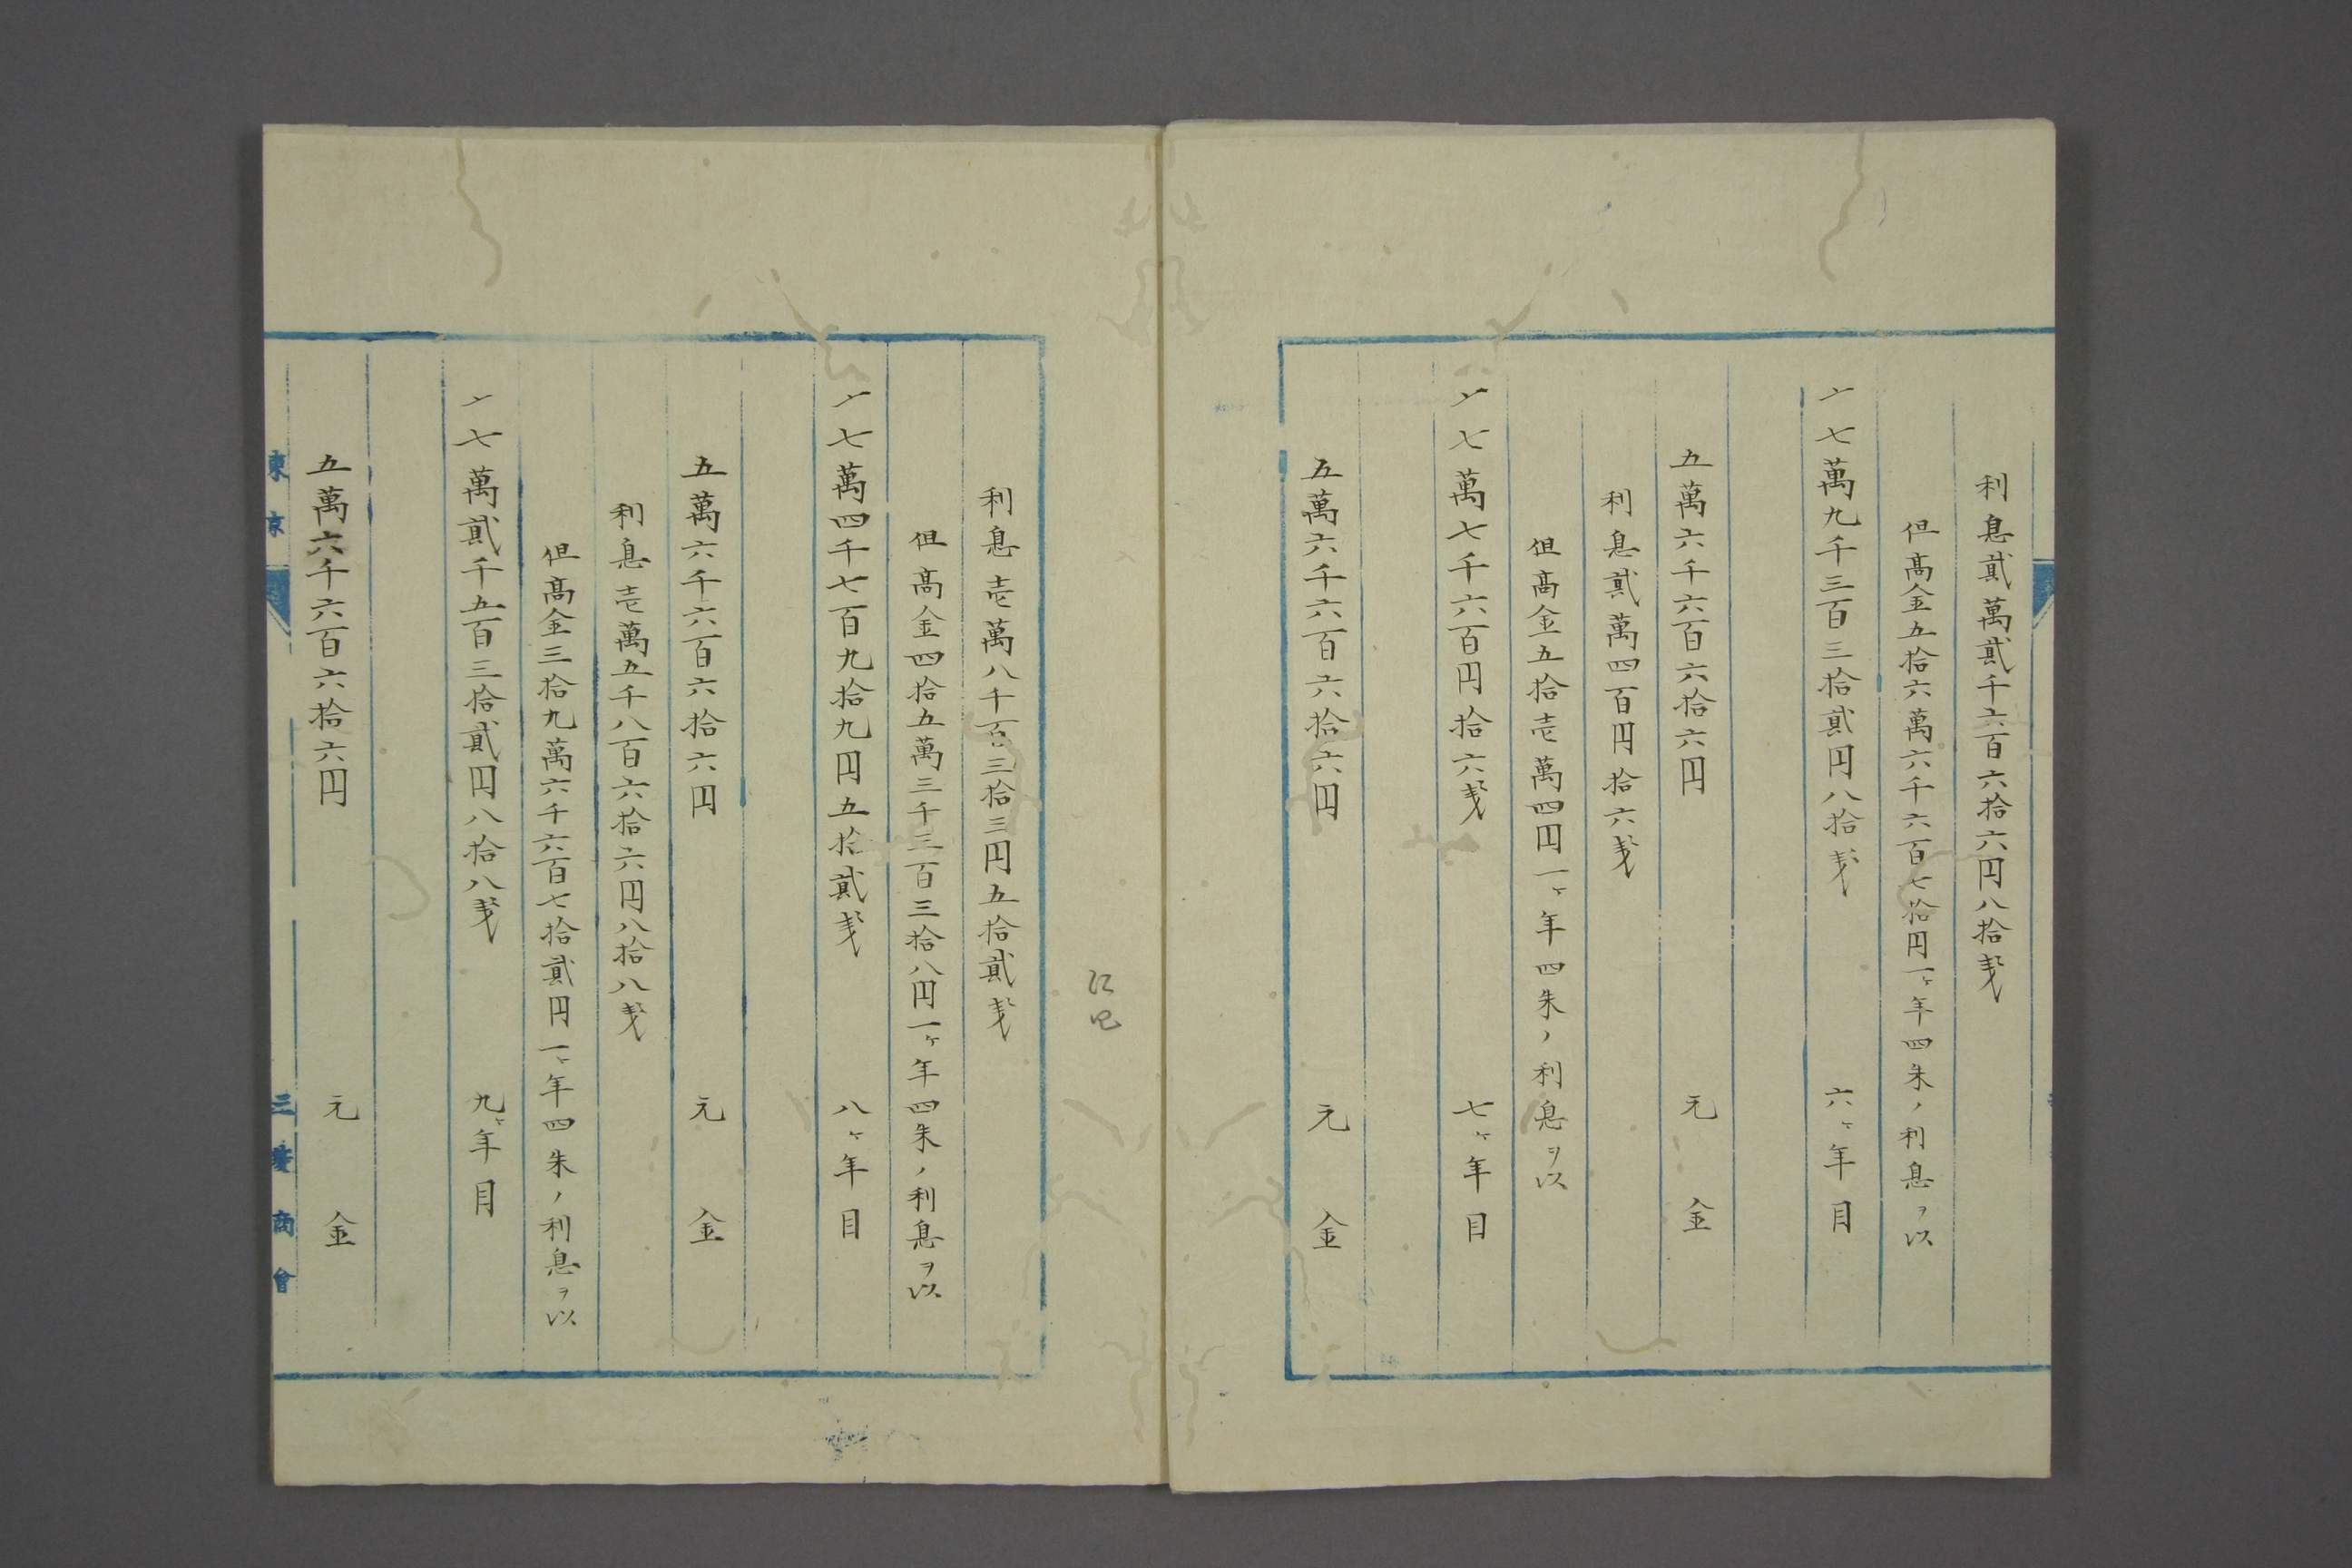 利息貳萬貳千六百六拾六円八拾戔
但髙金五拾六萬六千六百七拾円一ヶ年四朱ノ利息ヲ以
一七萬九千三百三拾貳円八拾戔 六ヶ年目
五萬六千六百六拾六円 元金
利息貳萬四百円拾六戔
但髙金五拾壱萬四円一ヶ年四朱ノ利息ヲ以
一七萬七千六百円拾六戔 七ヶ年目
五萬六千六百六拾六円 元金
利息壱萬八千百三拾三円五拾貳戔
但髙金四拾五萬三千三百三拾八円一ヶ年四朱ノ利息ヲ以
一七萬四千七百九拾九円五拾貳戔 八ヶ年目
五萬六千六百六拾六円 元金
利息壱萬五千八百六拾六円八拾八戔
但髙金三拾九萬六千六百七拾貳円一ヶ年四朱ノ利息ヲ以
一七萬貳千五百三拾貳円八拾八戔 九ヶ年目
五萬六千六百六拾六円 元金
東京 三菱商會